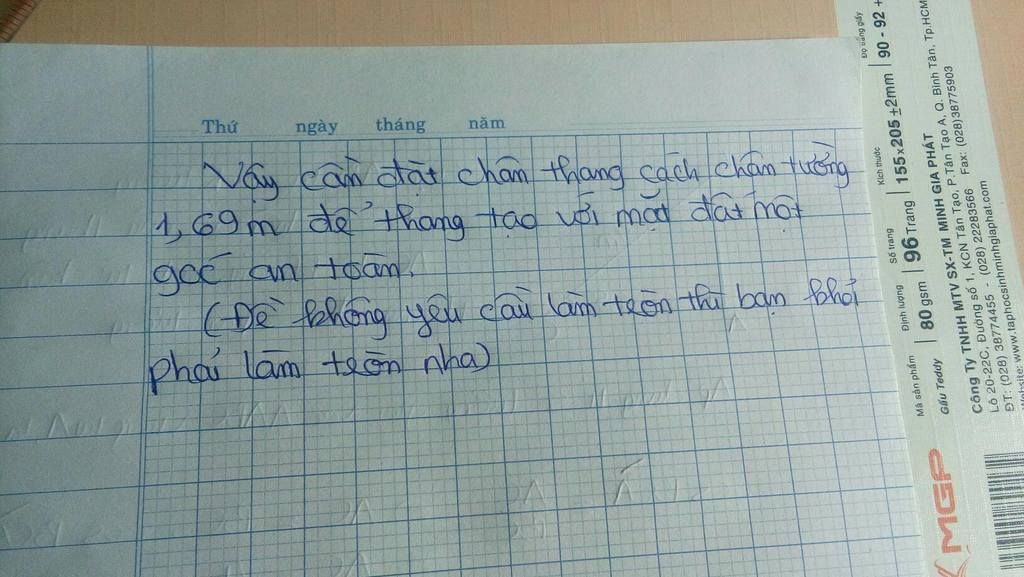 Thứ ngày tháng năm
Vậy cần đặt chân thang cách chân tường
1,69m để thang tạo với mặt đất một
góc an toàn.
(Đề không yêu cầu làm tròn thì bạn khỏi
phải làm tròn nha)
Độ trắng giấy
90 - 92 +
Kích thước
155x205 ±2mm
Số trang
96 Trang
Định lượng
80 gsm
Mã sản phẩm
Gấu Teddy
Công Ty TNHH MTV SX-TM MINH GIA PHÁT
Lô 20-22C, Đường số 1, KCN Tân Tạo, P.Tân Tạo A, Q. Bình Tân, Tp.HCM
ĐT: (028) 38774455 - (028) 22283566 Fax: (028)38775903
Website: www.taphocsinhminhgiaphat.com
MGP